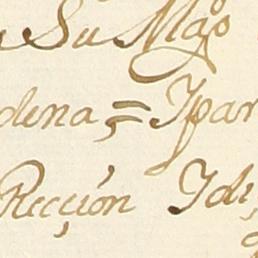 Su Mag.o
dena = Ypar
Reccion Ydi